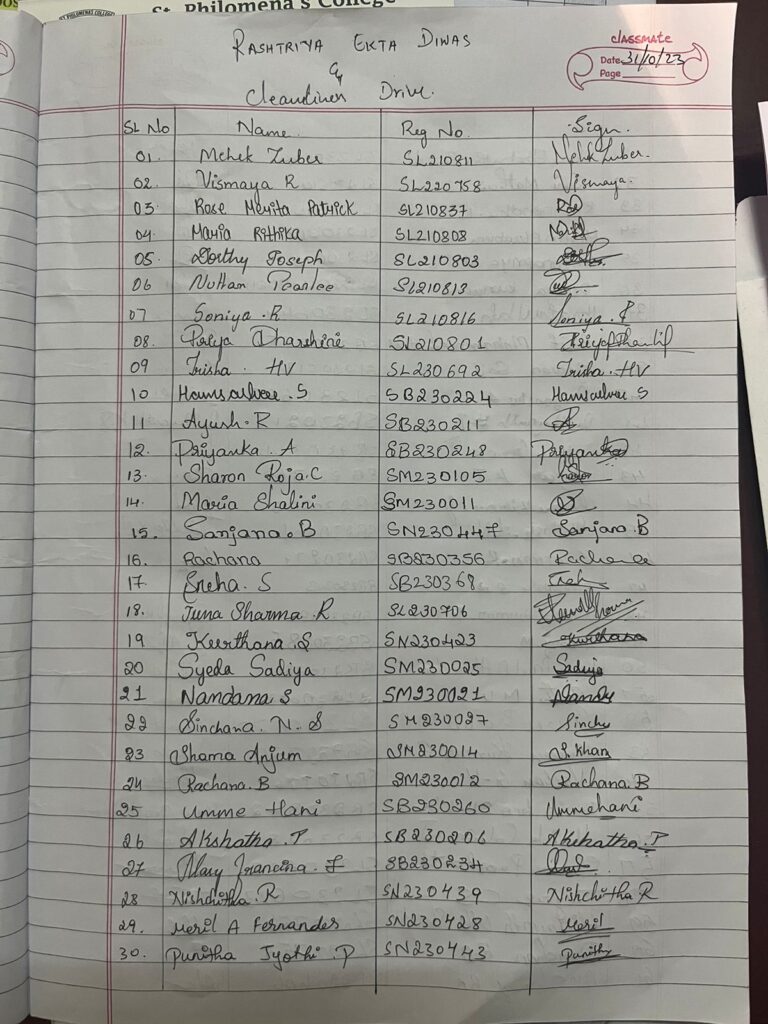 St. Philomena's College
ST. PHILOMENAS COLLEGE
RASHTRIYA EKTA DIWAS
&
Cleanliness Drive.
classmate
Date 31/10/23
Page
SL No Name Reg No. Sign.
01. Mehek Zuber SL210811 Mehk Zuber.
02. Vismaya R SL220758 Vismaya.
03. Rose Merita Patrick SL210837
04. Maria Rithika SL210808
05. Dorthy Joseph SL210803
06 Nuttam Pearlee SL210813
07 Soniya . R SL210816 Soniya . R
08. Priya Dharshini SL210801
09 Trisha . HV SL230692 Trisha . HV
10 Hamsaveni . S SB230224 Hamsaveni S
11 Ayush . R SB230211
12. Priyanka . A SB230248 Priyanka
13. Sharon Roja.C SM230105
14. Maria Shalini SM230011
15. Sanjana . B SN230447 Sanjana . B
16. Rachana SB230356 Rachana
17. Sneha . S SB230368
18. Tuna Sharma R SL230706
19 Keerthana . S SN230423 Keerthana
20 Syeda Sadiya SM230025 Sadiya
21 Nandana S SM230021 Nandy
22 Sinchana . N . S SM230027 Sinchu
23 Shama Anjum SM230014 S. Khan
24 Rachana . B SM230012 Rachana . B
25 Umme Hani SB230260 Ummehani
26 Akshatha . P SB230206 Akshatha . P
27 Mary Francina . F SB230234
28 Nishchitha . R SN230439 Nishchitha R
29. Meril A Fernandes SN230428 Meril
30. Punitha Jyothi . P SN230443 Punithy